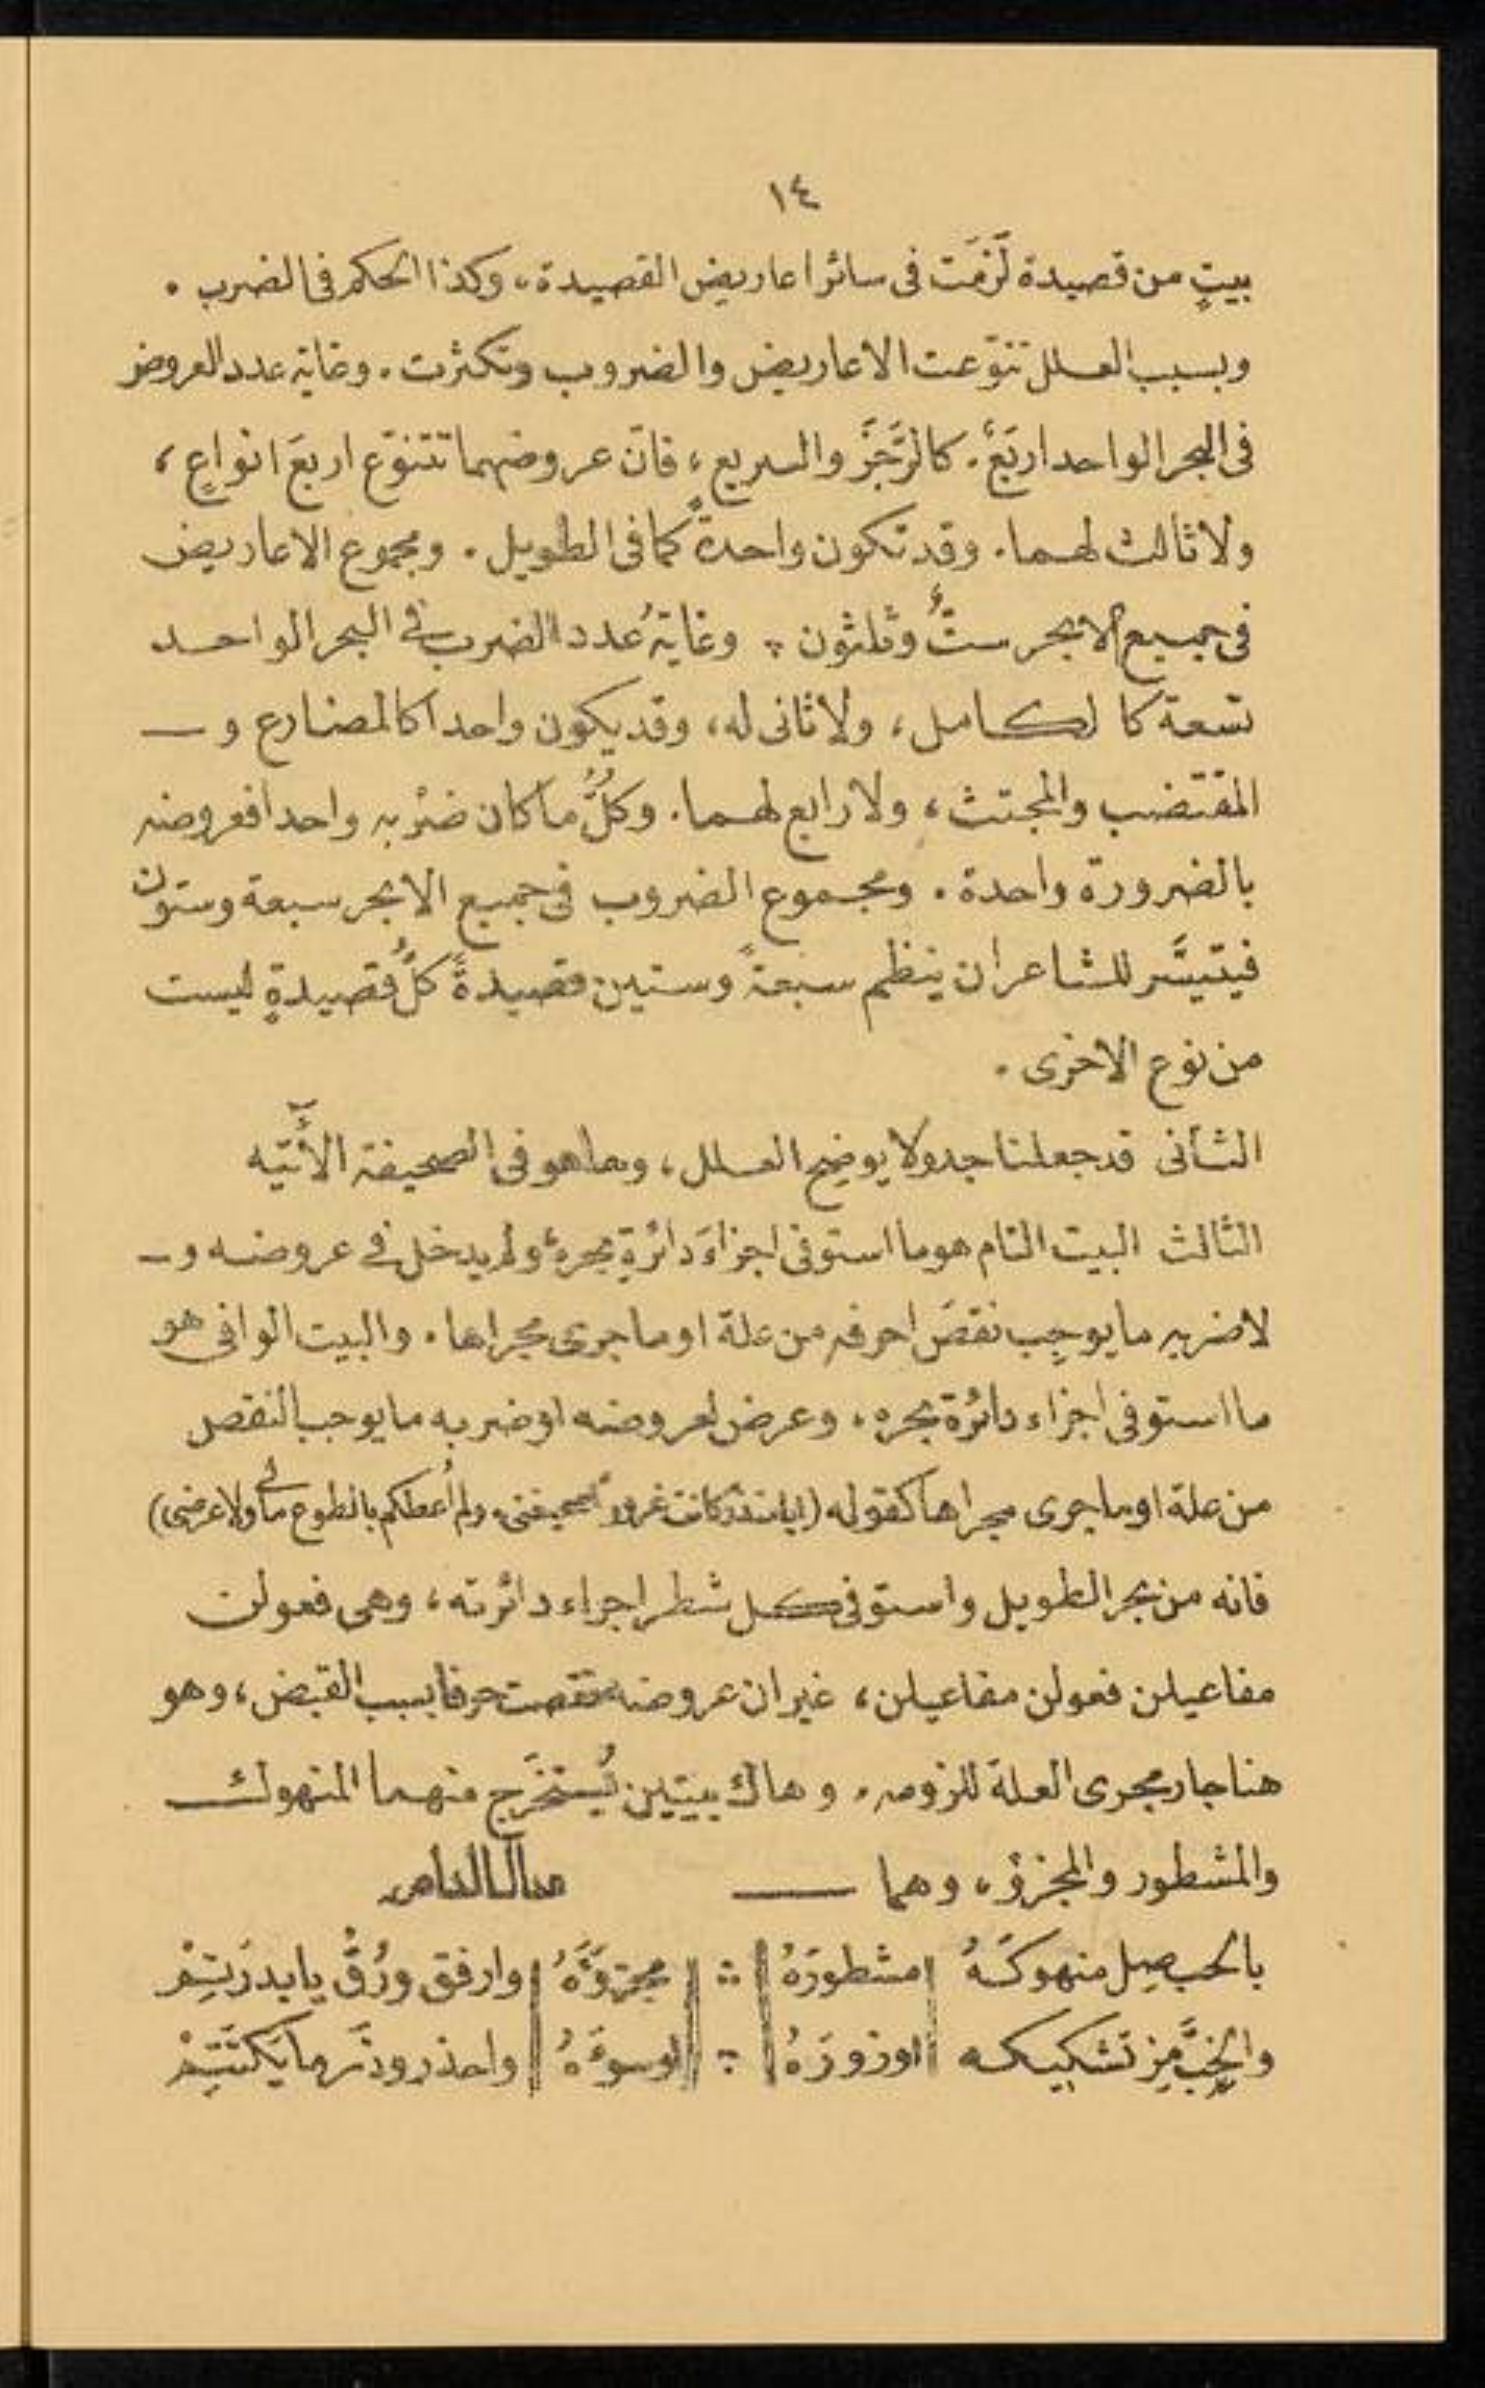 ١٤
بيتٍ من قصيدة لَزمَت فى سائر اعاريض القصيدة، وكذا الحكم فى الضرب .
وبسبب العلل تنوّعت الاعاريض والضروب وتكثرت . وغاية عدد العروض
فى البحر الواحد اربَعٌ . كالرَّجَز والسريع ، فانّ عروضهما تتنوّع اربعَ انواعٍ ،
ولا ثالث لهما . وقد تكون واحدةً كما فى الطويل . ومجموع الاعاريض
فى جميع الابحر ستٌّ وثلثون . وغايةُ عدد الضرب فى البحر الواحد
تسعة كا لكامل ، ولا ثانى له ، وقد يكون واحدا كالمضارع و ــ
المقتضب والمجتث ، ولا رابع لهما . وكلُّ ما كان ضرْبه واحدا فعروضه
بالضرورة واحدة . ومجموع الضروب فى جميع الابحر سبعة وستون
فيتيسَّر للشاعر ان ينظم سبعةً وستين قصيدةً كلُّ قصيدةٍ ليست
من نوع الاخرى .
الثانى قد جعلنا جدولا يوضح العلل ، وها هو فى الصحيفة الأتيه
الثالث البيت التام هو ما استوفى اجزاءَ دائرةِ بحره ، ولم يدخل فى عروضه و ــ
لا ضربه ما يوجِب نقصَ احرفه من علة او ما جرى مجراها . والبيت الوافى هو
ما استوفى اجزاء دائرة بحره ، وعرض لعروضه او ضربه ما يوجب النقص
من علة او ما جرى مجراها كقوله ( كانت غرورًا صحيفتى ، ولم اُعطكم بالطوع مالى ولا عرضى )
فانه من بحر الطويل واستوفى كل شطر اجراء دائرته ، وهى فعولن
مفاعيلن فعولن مفاعيلن ، غير ان عروضه نقصت حرفا بسبب القبض ، وهو
هنا جار مجرى العلة للزومه . وهاك بيتين يُستخرَج منهما المنهوك ــ
والمشطور والمجزؤ ، وهما ــ مثال التام
بالحب صِل منهوكَهُ | مشطورَهُ || ∴ || مجزوَّهُ || وارفق ورُقْ يا بدرَتِمْ
والخِبَّ مِز تشكيكه || اوزورَهُ || ∴ || اوسوءَهُ || واحذر وذَر ما يَكتَتِمْ